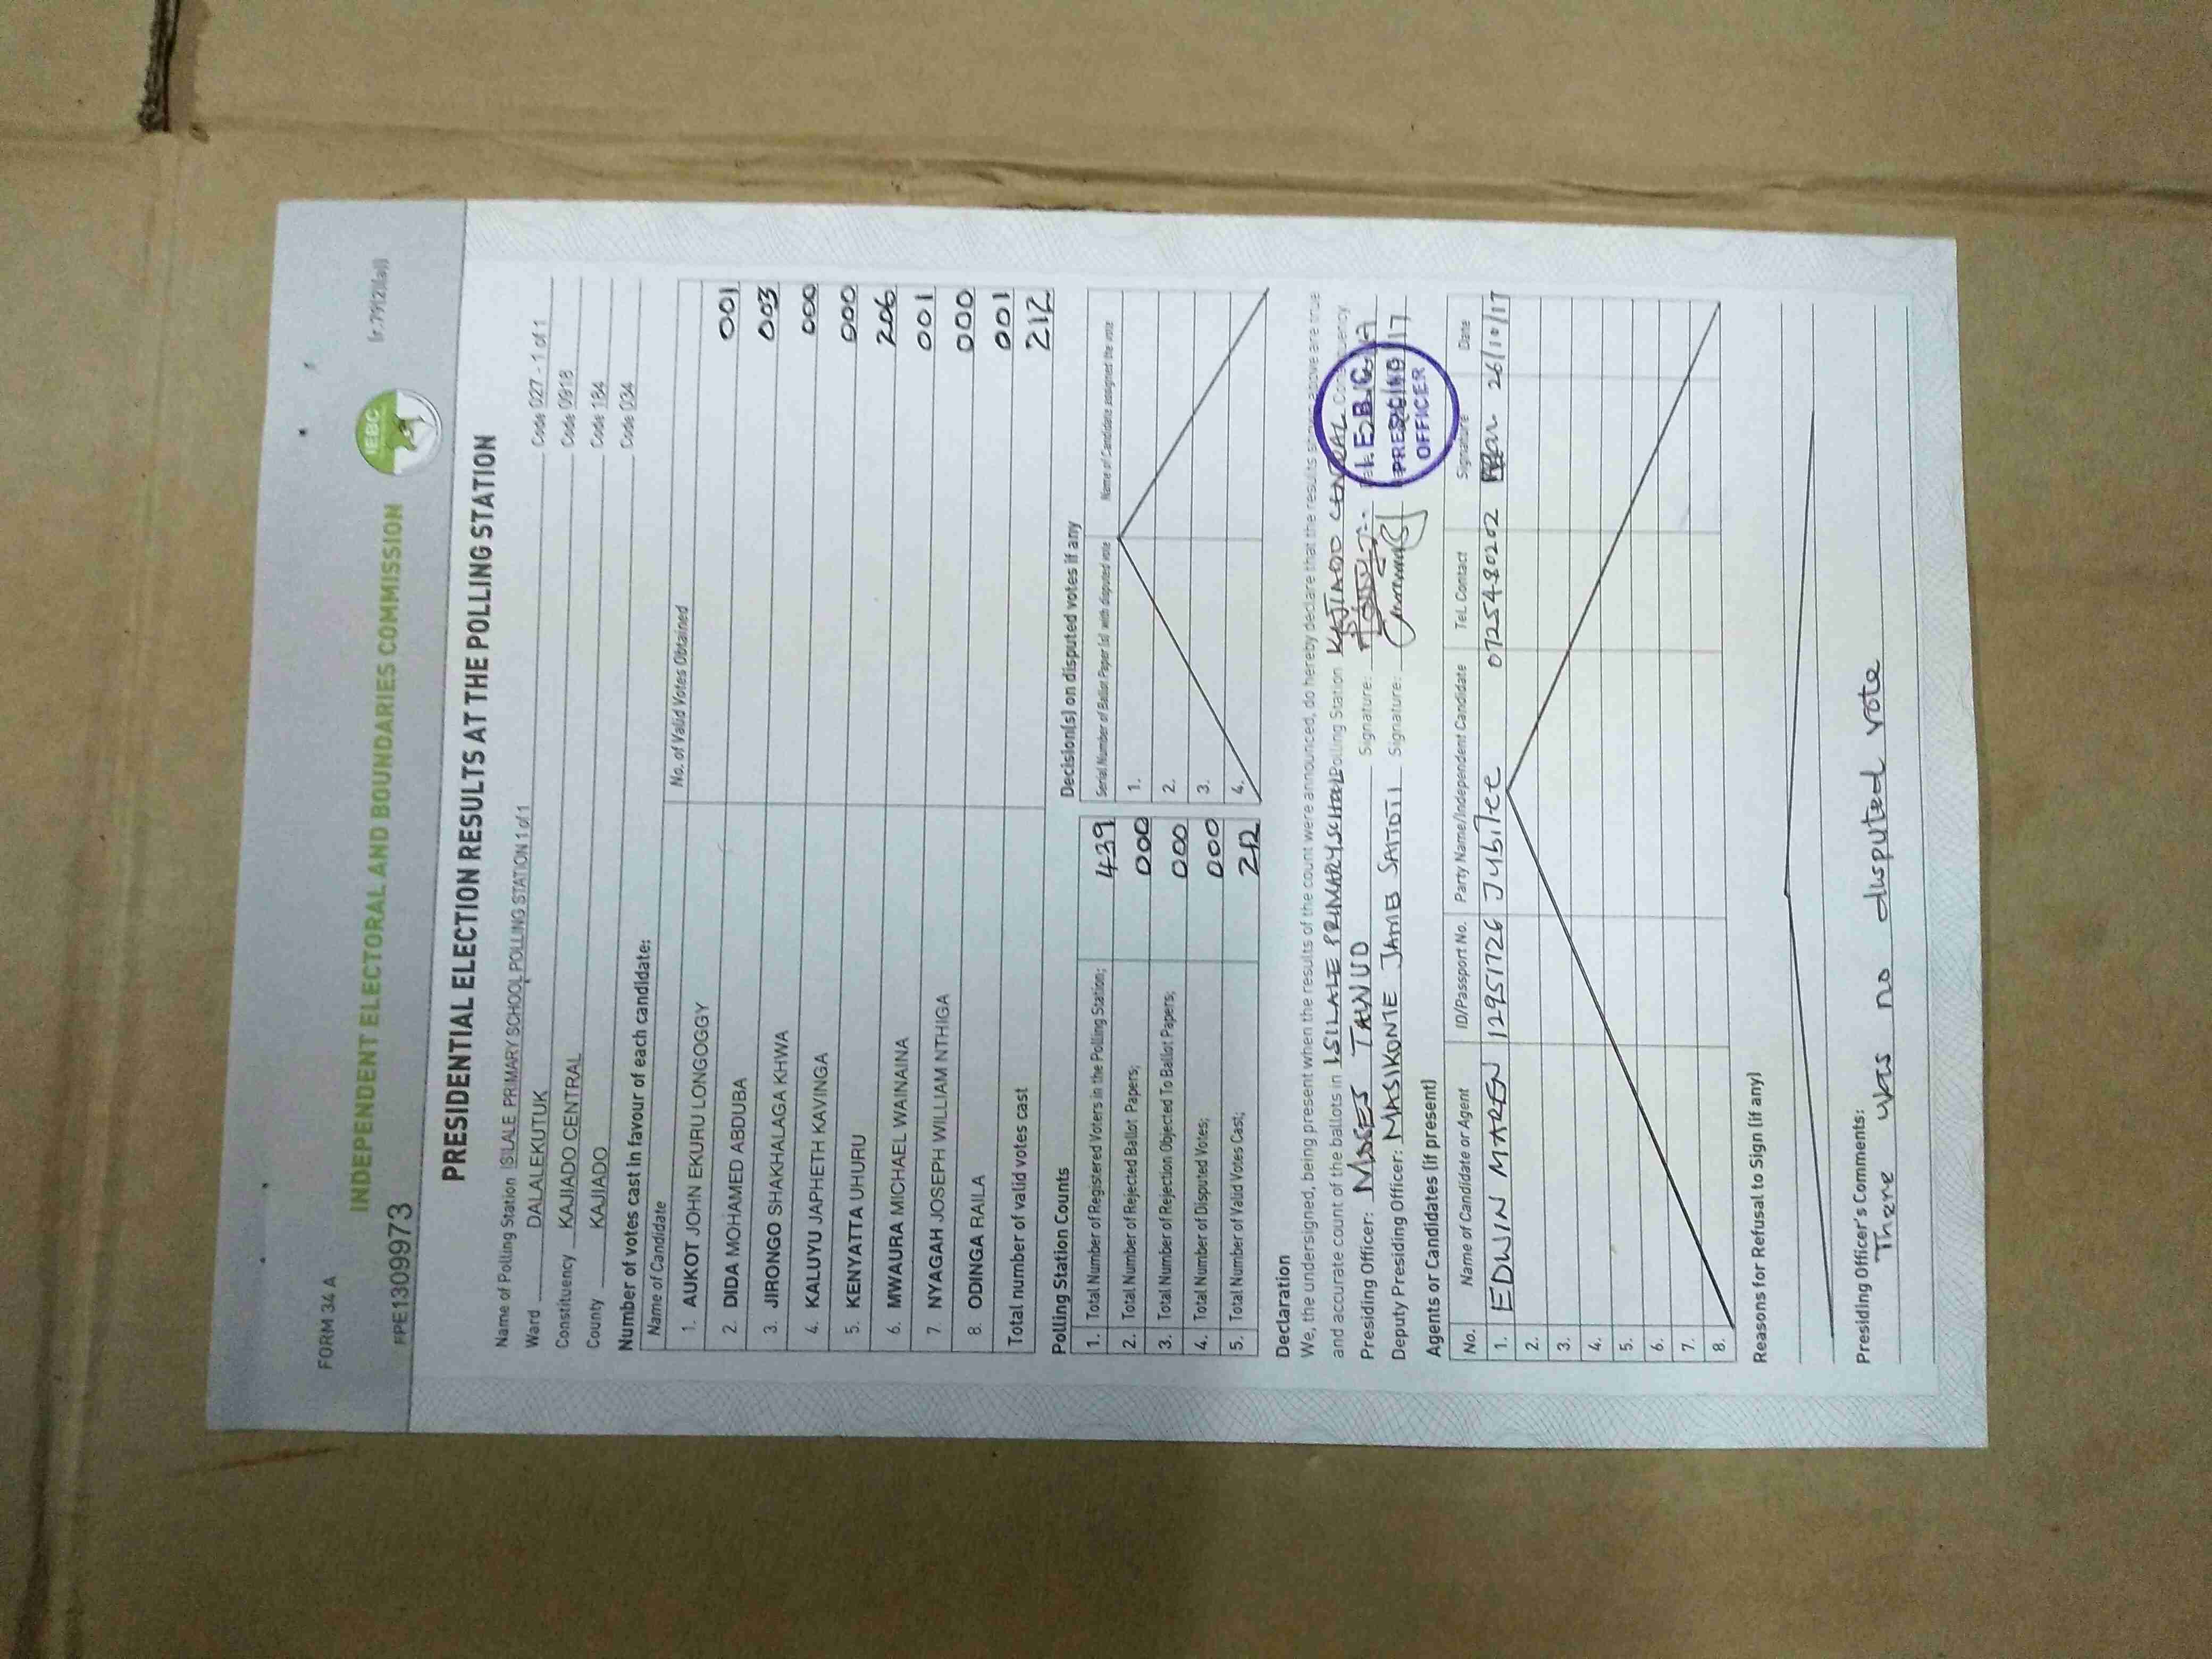 FORM 34 A
(r.79(2)(a))
INDEPENDENT ELECTORAL AND BOUNDARIES COMMISSION
IEBC
PPE13099973
PRESIDENTIAL ELECTION RESULTS AT THE POLLING STATION
Name of Polling Station ISILALE PRIMARY SCHOOL POLLING STATION 1 of 1 Code 027 - 1 of 1
Ward DALALEKUTUK Code 0918
Constituency KAJIADO CENTRAL Code 184
County KAJIADO Code 034
Number of votes cast in favour of each candidate:
Name of Candidate No. of Valid Votes Obtained
1. AUKOT JOHN EKURU LONGOGGY 001
2. DIDA MOHAMED ABDUBA 003
3. JIRONGO SHAKHALAGA KHWA 000
4. KALUYU JAPHETH KAVINGA 000
5. KENYATTA UHURU 206
6. MWAURA MICHAEL WAINAINA 001
7. NYAGAH JOSEPH WILLIAM NTHIGA 000
8. ODINGA RAILA 001
Total number of valid votes cast 212
Polling Station Counts
1. Total Number of Registered Voters in the Polling Station; 439
2. Total Number of Rejected Ballot Papers; 000
3. Total Number of Rejection Objected To Ballot Papers; 000
4. Total Number of Disputed Votes; 000
5. Total Number of Valid Votes Cast; 212
Decision(s) on disputed votes if any
Serial Number of Ballot Paper (s) with disputed vote Name of Candidate assigned the vote
1.
2.
3.
4.
Declaration
We, the undersigned, being present when the results of the count were announced, do hereby declare that the results shown above are true
and accurate count of the ballots in ISILALE PRIMARY SCHOOL Polling Station KAJIADO CENTRAL Constituency
Presiding Officer: MOSES Signature:
Deputy Presiding Officer: MASIKONTE JAMES SAITOTI Signature:
I.E.B.C.
PRESIDING
OFFICER
Agents or Candidates (if present)
No. Name of Candidate or Agent ID/Passport No. Party Name/Independent Candidate Tel. Contact Signature Date
1. EDWIN MAREN 12951726 Jubilee 0725480202 26/10/17
2.
3.
4.
5.
6.
7.
8.
Reasons for Refusal to Sign (if any)
Presiding Officer's Comments:
There was no disputed vote